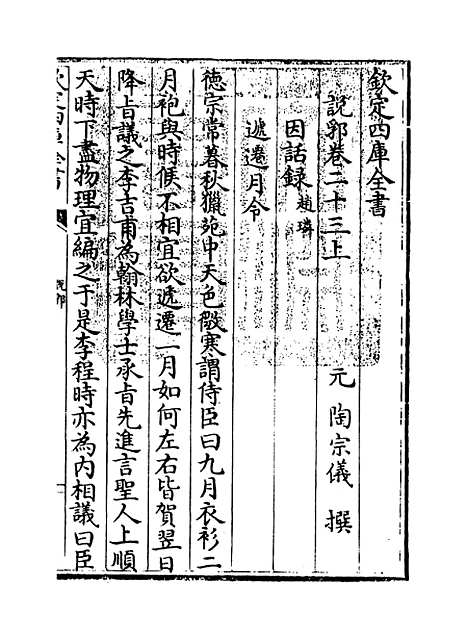 欽定四庫全書
說郛卷二十三上
元 陶宗儀 撰
因話錄 趙璘
遞遷月令
徳宗常暮秋獵苑中天色微寒謂侍臣曰九月衣衫二
月袍與時候不相宜欲遞遷一月如何左右皆賀翌日
降旨議之李吉甫為翰林學士承旨先進言聖人上順
天時下盡物理宜編之于是李程時亦為内相議曰臣
欽定四庫全書
說郛
一